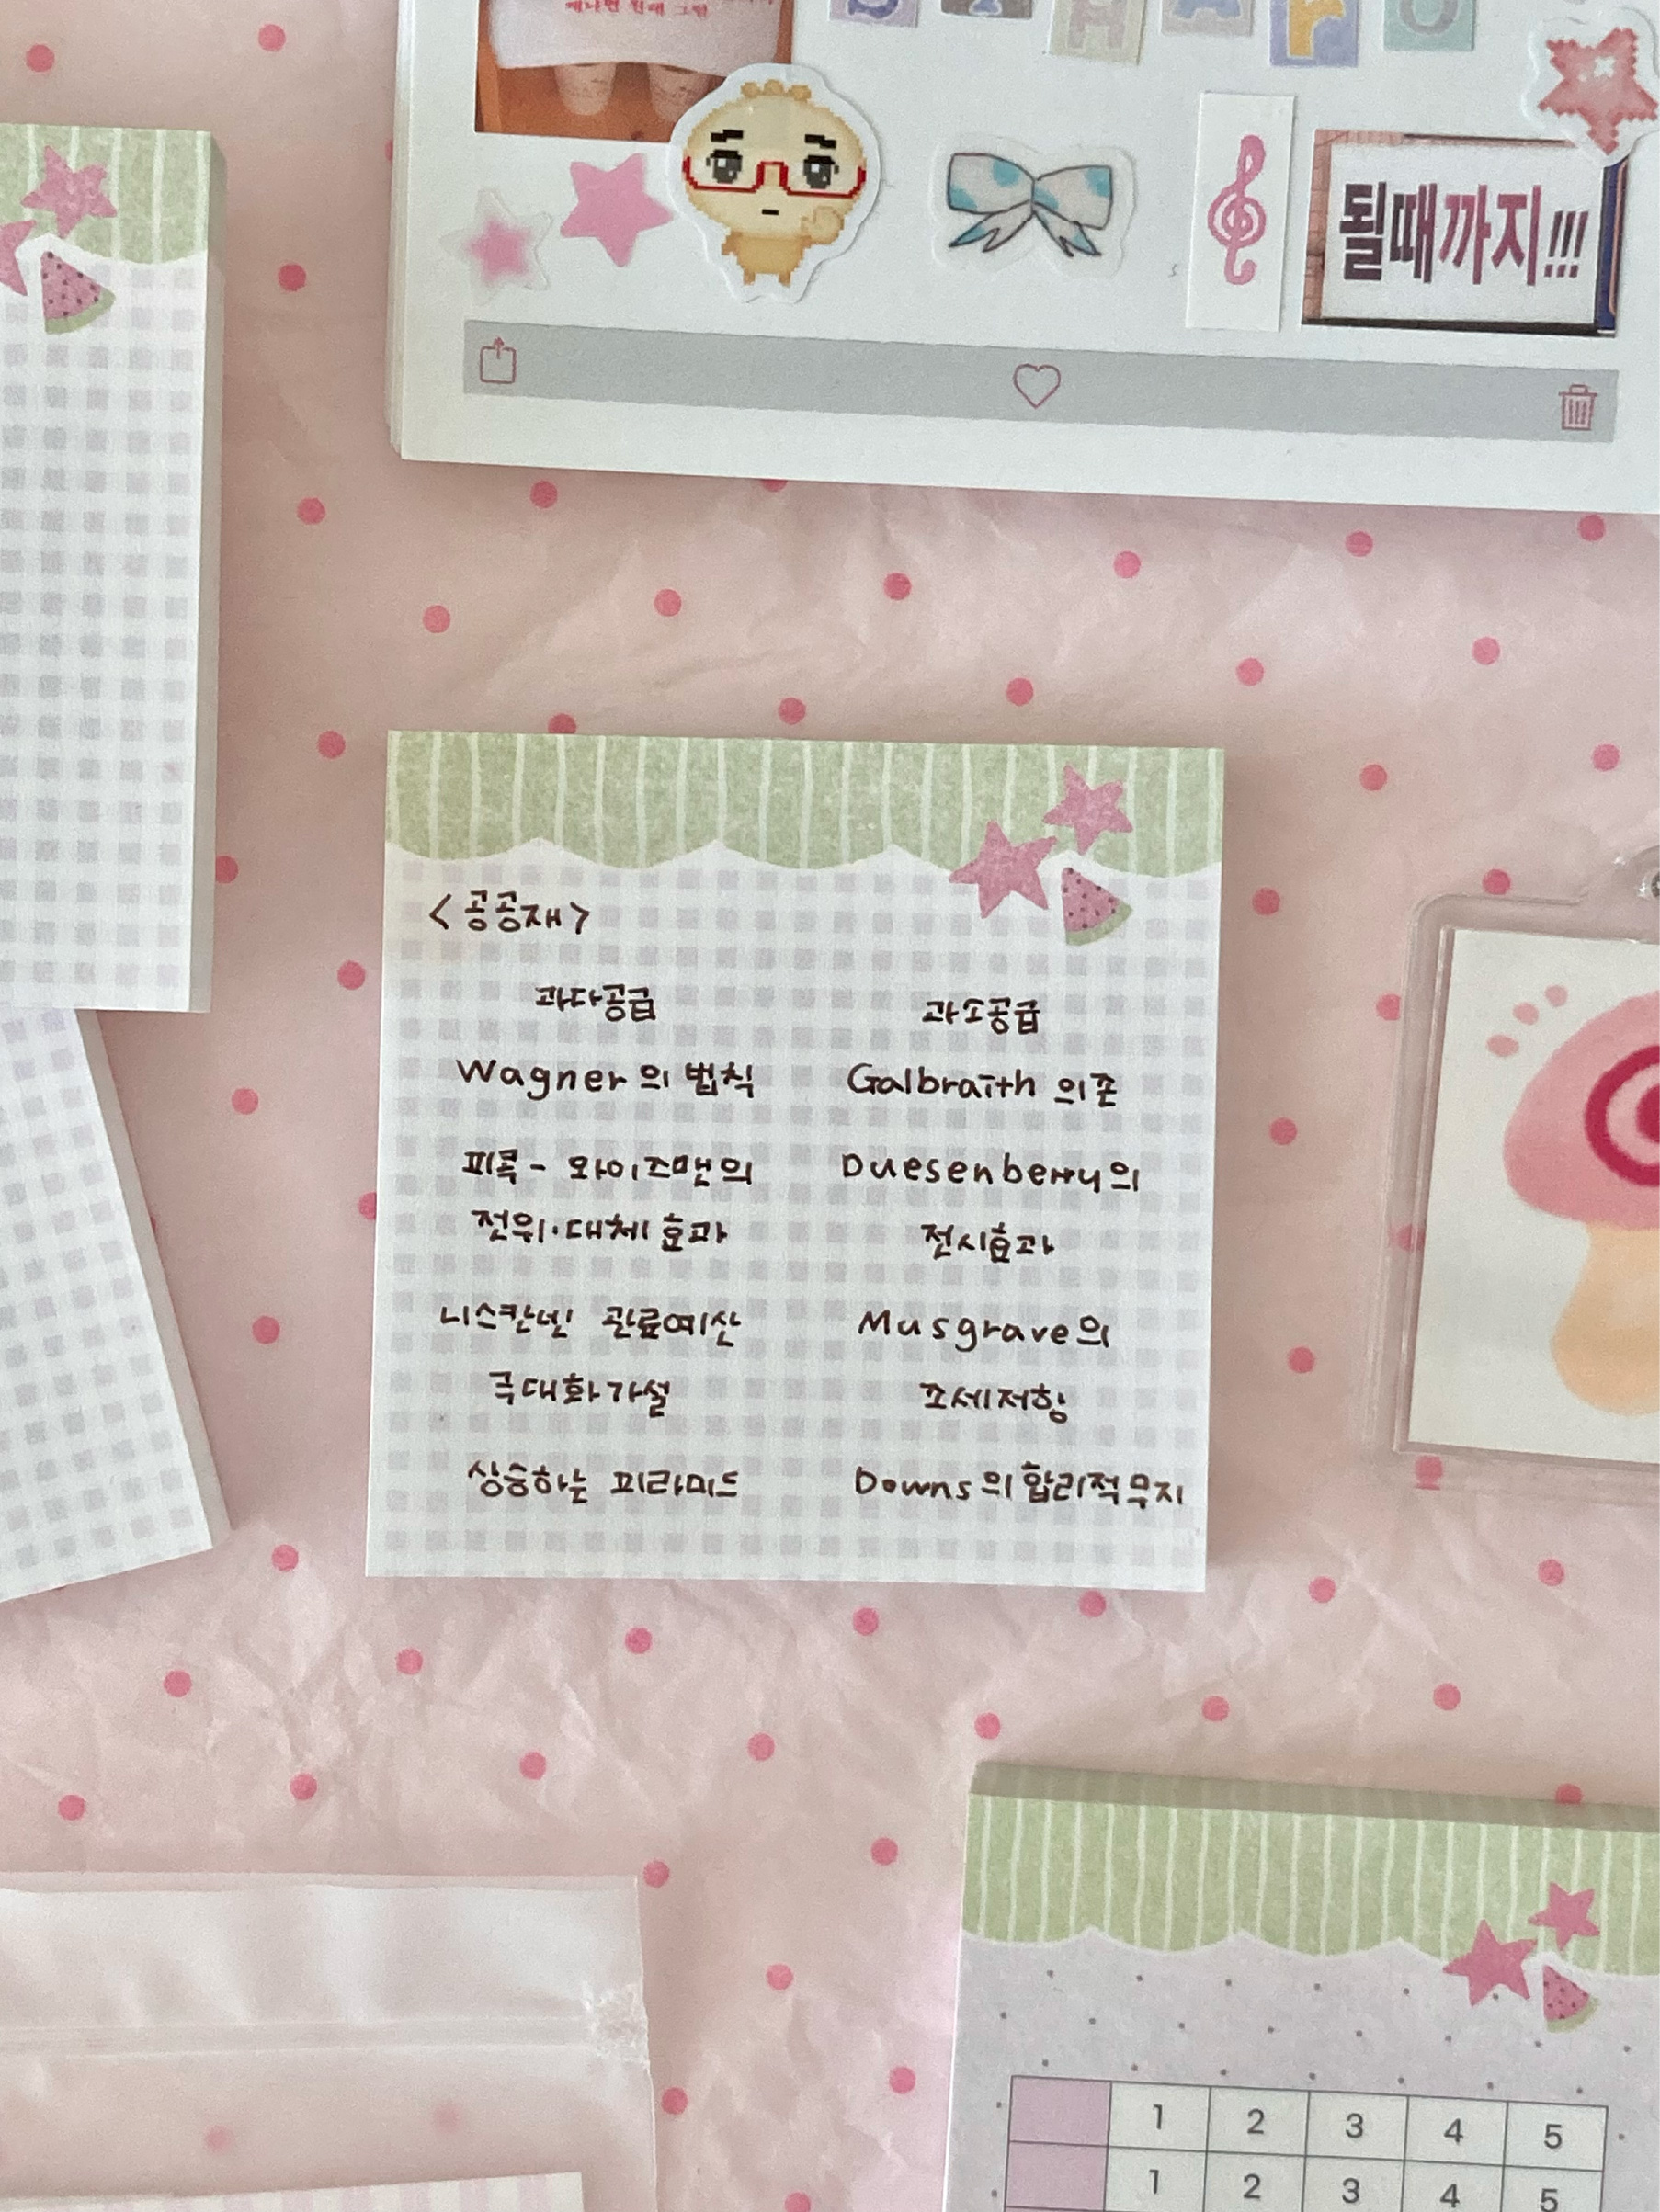 때까지 그린
S T H A r U
될때까지!!!
<공공재>
과다공급 과소공급
Wagner의 법칙 Galbraith 의존
피콕- 와이즈맨의 Duesenberry의
전위·대체 효과 전시효과
니스칸넨 관료예산 Musgrave의
극대화가설 조세저항
상승하는 피라미드 Downs의 합리적 무지
1 2 3 4 5
1 2 3 4 5